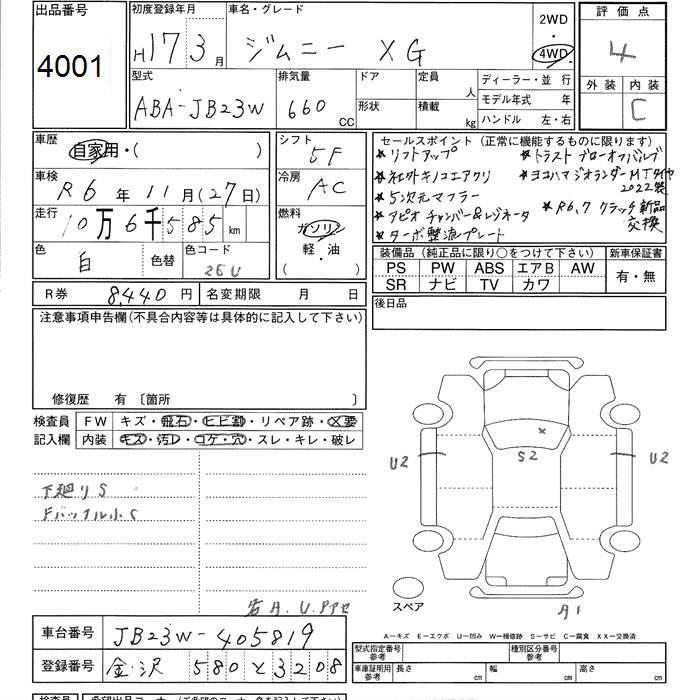 出品番号 初度登録年月 車名・グレード 2WD 評価点
4001 H 17 3月 ジムニー XG 4WD 4
型式 排気量 ドア 定員 人 ディーラー・並行 外装 内装
ABA-JB23W 660 CC 形状 積載 kg モデル年式 年 C
ハンドル 左・右
車歴 自家用・( ) シフト 5F
車検 R6年11月(27日) 冷房 AC
走行 10万6千585km 燃料 ガソリン
軽・油
( )
色 白 色替 色コード 26U
R券 8,440円 名変期限 月 日
セールスポイント(正常に機能するものに限ります)
★リフトアップ ★トラスト ブローオフバルブ
★社外キノコエアクリ ★ヨコハマジオランダーMTタイヤ
★5次元マフラー 2022製
★アピオ チャンバー&レジネータ ★R6.7 クラッチ新品
★ターボ整流プレート 交換
装備品(純正品に限り○をつけて下さい) 新車保証書
PS PW ABS エアB AW 有・無
SR ナビ TV カワ
後日品
注意事項申告欄(不具合内容等は具体的に記入して下さい)
修復歴 有 〔箇所 〕
検査員 FW キズ・飛石・ヒビ割・リペア跡・X要
記入欄 内装 キズ・汚レ・コゲ・穴・スレ・キレ・破レ
下廻りS
U2 S2 U2
スペア A1
A-キズ E-エクボ U-凹み W-補修跡 S-サビ C-腐食 XX-交換済
車台番号 JB23W-405819
登録番号 金沢 580 と 3208
型式指定番号 参考 種別区分番号 参考
車庫証明用 参考 長さ cm 幅 cm 高さ cm